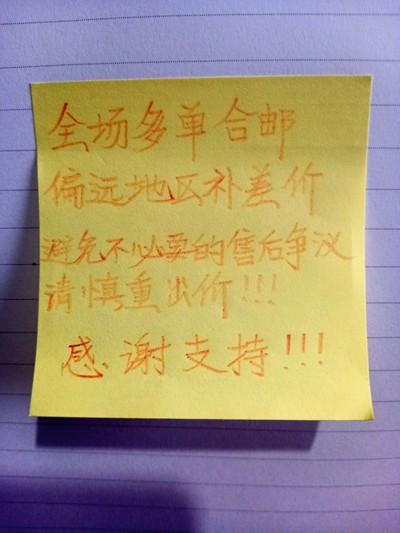 全场多单合邮
偏远地区补差价
避免不必要的售后争议
请慎重出价!!!
感谢支持!!!